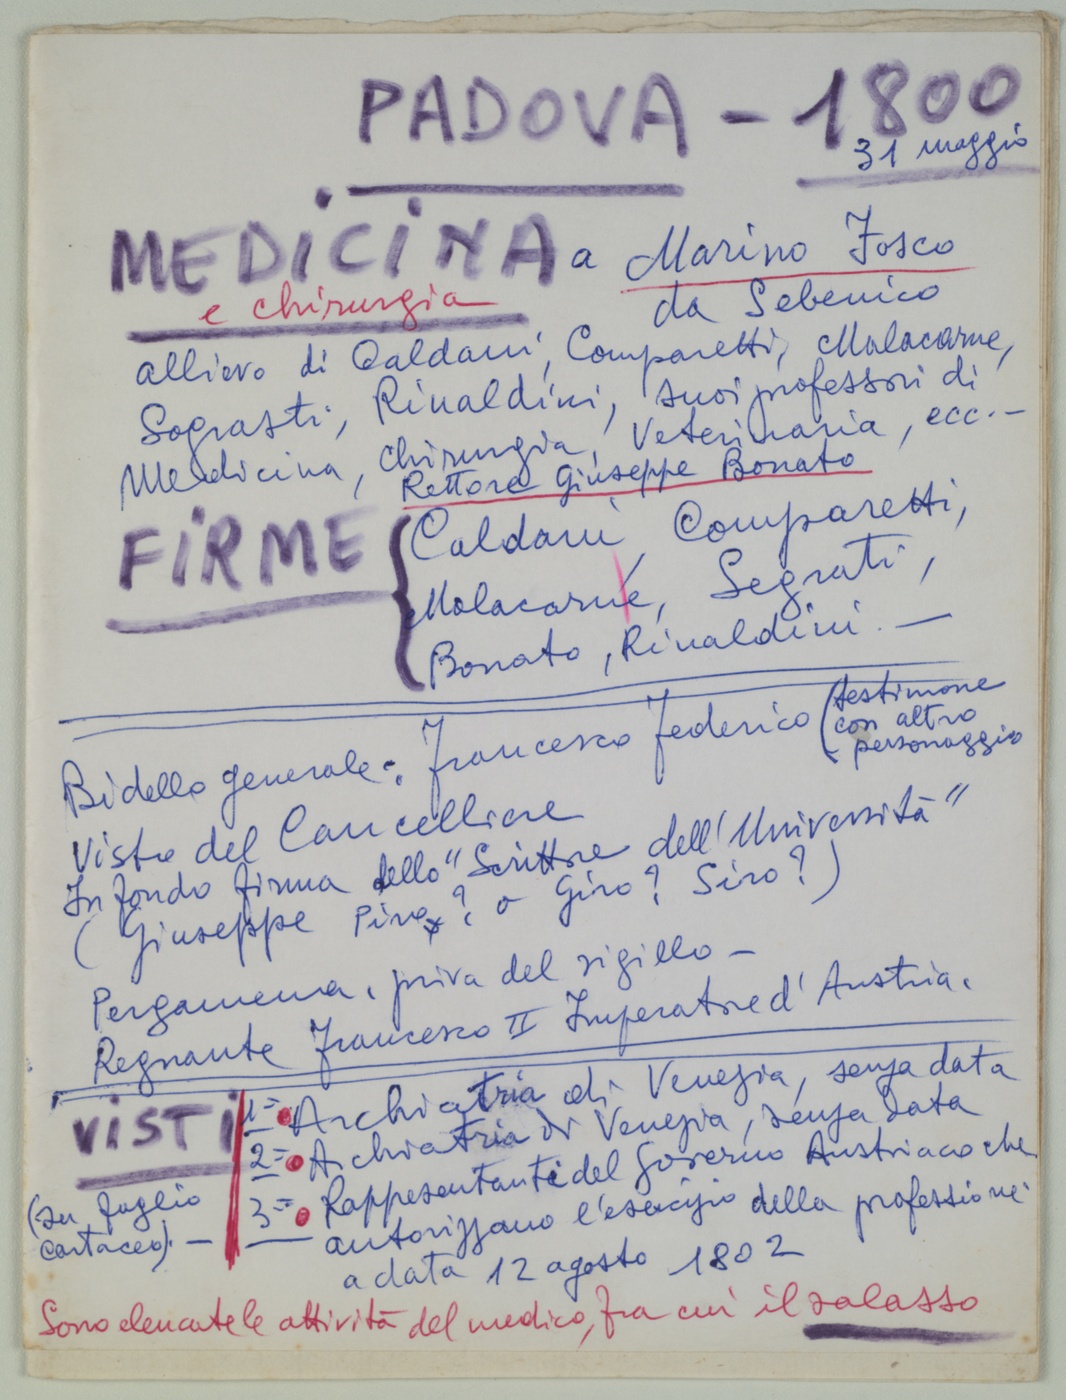 PADOVA - 1800
31 maggio
MEDICINA a Marino Fosco
e chirurgia
da Sebenico
allievo di Caldani, Comparetti, Malacarne,
Sograsti, Rinaldini, suoi professori di
Medicina, chirurgia, Veterinaria, ecc. -
Rettore Giuseppe Bonato
FIRME { Caldani, Comparetti,
Malacarne, Segrati,
Bonato, Rinaldini. -
Bidello generale: Francesco Federico (testimone
con altro
personaggio
Visto del Cancelliere
In fondo firma dello "Scrittore dell'Università"
(Giuseppe Piro? o Giro? Siro?)
Pergamena, priva del sigillo -
Regnante Francesco II Imperatore d'Austria.
VISTI 1= Archiatria di Venezia, senza data
2= Archiatria di Venezia, senza data
3= Rappresentanti del Governo Austriaco che
(su foglio
cartaceo). -
autorizzano l'esercizio della professione
a data 12 agosto 1802
Sono elencate le attività del medico, fra cui il salasso